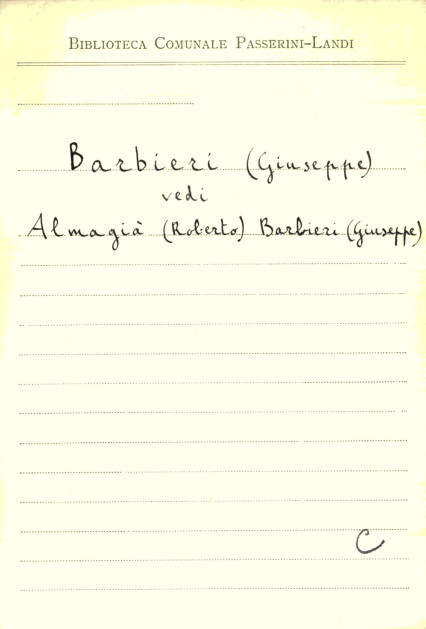 Biblioteca Comunale Passerini-Landi
Barbieri (Giuseppe)
vedi
Almagià (Roberto) Barbieri (Giuseppe)
C